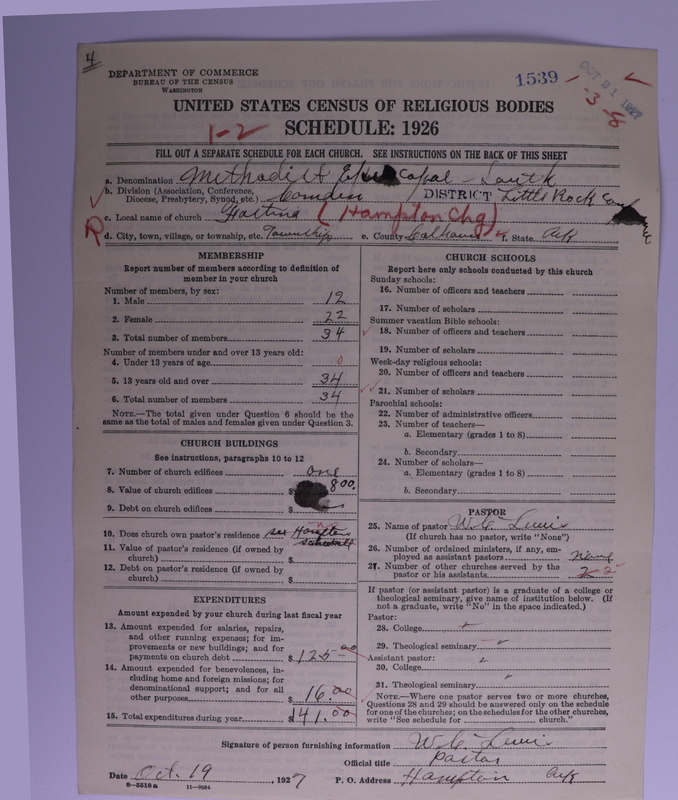 4
DEPARTMENT OF COMMERCE
BUREAU OF THE CENSUS
WASHINGTON
1539
OCT 21 1927
-3-8
UNITED STATES CENSUS OF RELIGIOUS BODIES
1-2
SCHEDULE: 1926
FILL OUT A SEPARATE SCHEDULE FOR EACH CHURCH. SEE INSTRUCTIONS ON THE BACK OF THIS SHEET
a. Denomination Methodist Episcopal South
b. Division (Association, Conference, Diocese, Presbytery, Synod, etc.) Camden DISTRICT Little Rock
c. Local name of church (Hampton Chg)
d. City, town, village, or township, etc. Township e. County Calhoun f. State Ark
MEMBERSHIP
Report number of members according to definition of
member in your church
Number of members, by sex:
1. Male 12
2. Female 22
3. Total number of members 34
Number of members under and over 13 years old:
4. Under 13 years of age 0
5. 13 years old and over 34
6. Total number of members 34
NOTE.—The total given under Question 6 should be the
same as the total of males and females given under Question 3.
CHURCH BUILDINGS
See instructions, paragraphs 10 to 12
7. Number of church edifices one
8. Value of church edifices $ 800.
9. Debt on church edifices $
10. Does church own pastor's residence see Hampton schedule
11. Value of pastor's residence (if owned by
church) $
12. Debt on pastor's residence (if owned by
church) $
EXPENDITURES
Amount expended by your church during last fiscal year
13. Amount expended for salaries, repairs,
and other running expenses; for im-
provements or new buildings; and for
payments on church debt $ 125.00
14. Amount expended for benevolences, in-
cluding home and foreign missions; for
denominational support; and for all
other purposes $ 16.00
15. Total expenditures during year $ 141.00
CHURCH SCHOOLS
Report here only schools conducted by this church
Sunday schools:
16. Number of officers and teachers
17. Number of scholars
Summer vacation Bible schools:
18. Number of officers and teachers
19. Number of scholars
Week-day religious schools:
20. Number of officers and teachers
21. Number of scholars
Parochial schools:
22. Number of administrative officers
23. Number of teachers—
a. Elementary (grades 1 to 8)
b. Secondary
24. Number of scholars—
a. Elementary (grades 1 to 8)
b. Secondary
PASTOR
25. Name of pastor W. C. Lewis
(If church has no pastor, write "None")
26. Number of ordained ministers, if any, em-
ployed as assistant pastors None
27. Number of other churches served by the
pastor or his assistants 2 2
If pastor (or assistant pastor) is a graduate of a college or
theological seminary, give name of institution below. (If
not a graduate, write "No" in the space indicated.)
Pastor:
28. College
29. Theological seminary
Assistant pastor:
30. College
31. Theological seminary
NOTE.—Where one pastor serves two or more churches,
Questions 28 and 29 should be answered only on the schedule
for one of the churches; on the schedules for the other churches,
write "See schedule for church."
Signature of person furnishing information W. C. Lewis
Official title Pastor
Date Oct. 19, 1927 P. O. Address Hampton Ark
8-5518a 11-9054